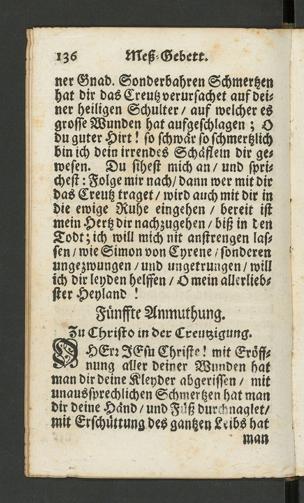 136 Meß-Gebett.
ner Gnad. Sonderbahren Schmertzen
hat dir das Creutz verursachet auf dei-
ner heiligen Schulter / auf welcher es
grosse Wunden hat aufgeschlagen ; O
du guter Hirt ! so schwär so schmertzlich
bin ich dein irrendes Schäflein dir ge-
wesen. Du sihest mich an / und spri-
chest : Folge mir nach / dann wer mit dir
das Creutz traget / wird auch mit dir in
die ewige Ruhe eingehen / bereit ist
mein Hertz dir nachzugehen / biß in den
Todt ; ich will mich nit anstrengen las-
sen / wie Simon von Cyrene / sonderen
ungezwungen / und ungetrungen / will
ich dir leyden helffen / O mein allerlieb-
ster Heyland !
Fünffte Anmuthung.
Zu Christo in der Creutzigung.
O HErr JEsu Christe ! mit Eröff-
nung aller deiner Wunden hat
man dir deine Kleyder abgerissen / mit
unaussprechlichen Schmertzen hat man
dir deine Händ / und Füß durchnaglet /
mit Erschüttung des gantzen Leibs hat
man